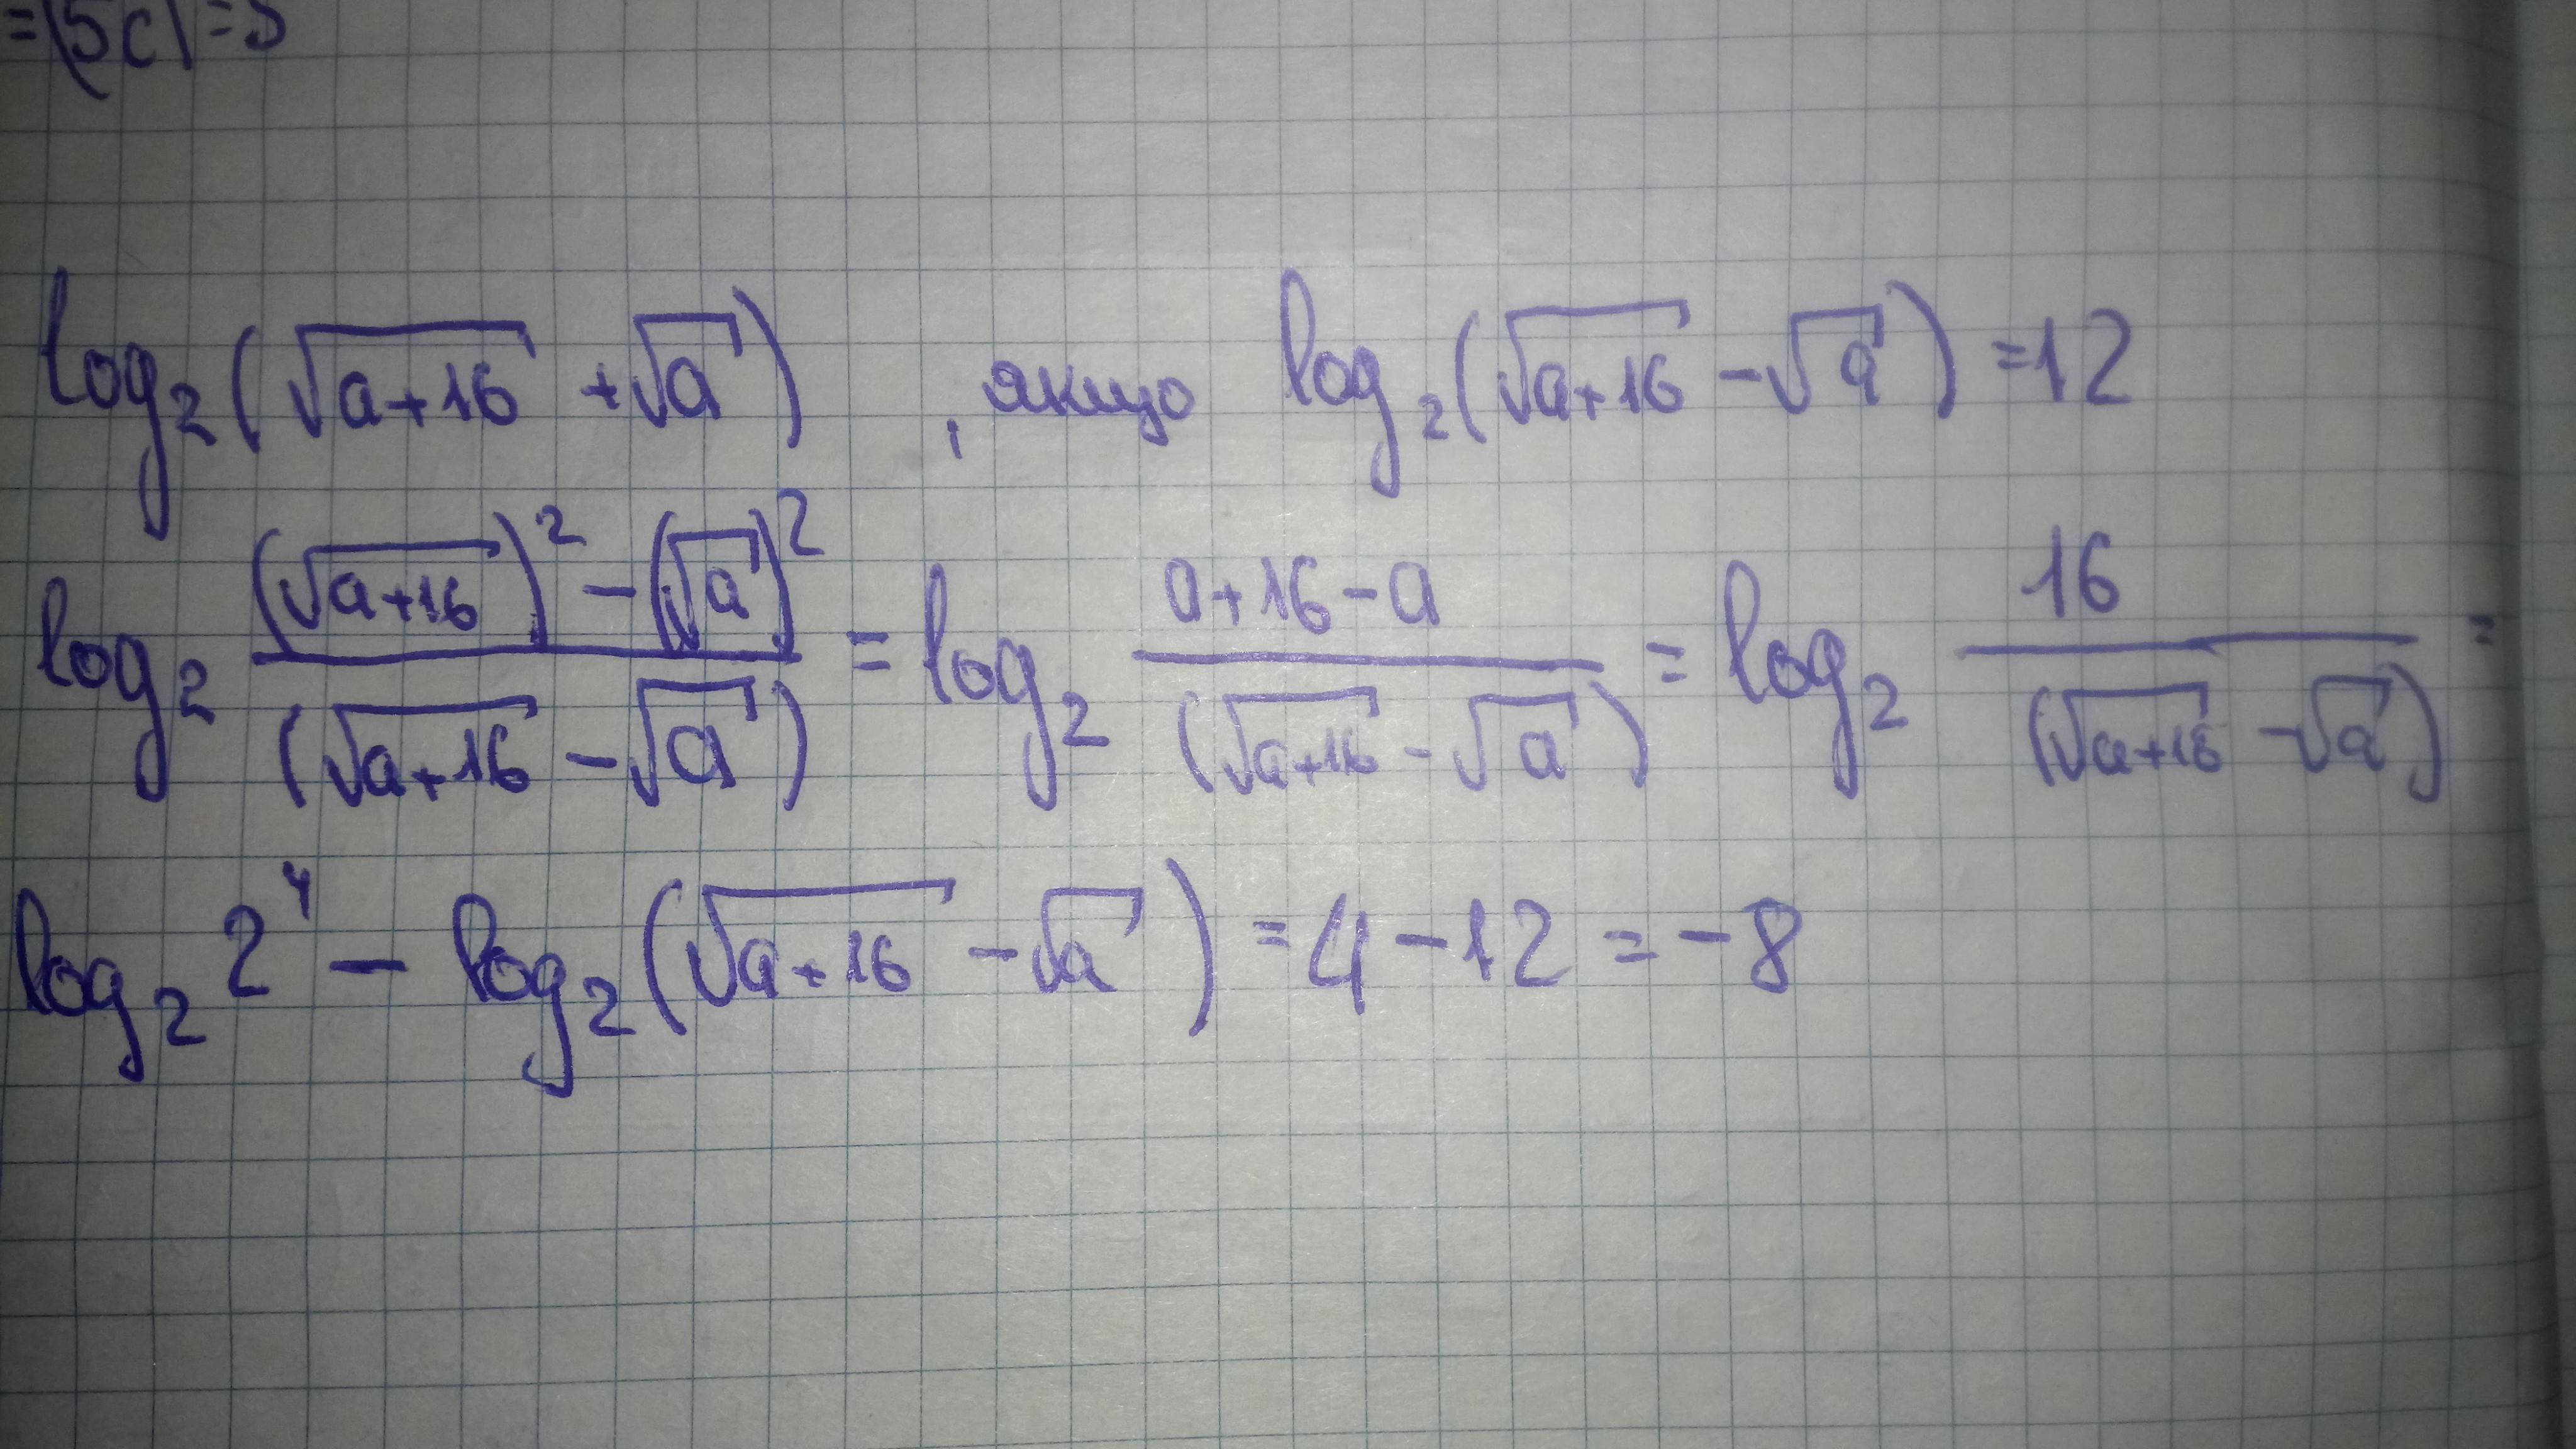 =|5c|=5
log₂(√(a+16) + √a) , якщо log₂(√(a+16) - √a) = 12
log₂ ((√(a+16))² - (√a)²)/(√(a+16) - √a) = log₂ (a+16-a)/(√(a+16) - √a) = log₂ 16/(√(a+16) - √a) =
log₂ 2⁴ - log₂(√(a+16) - √a) = 4 - 12 = -8